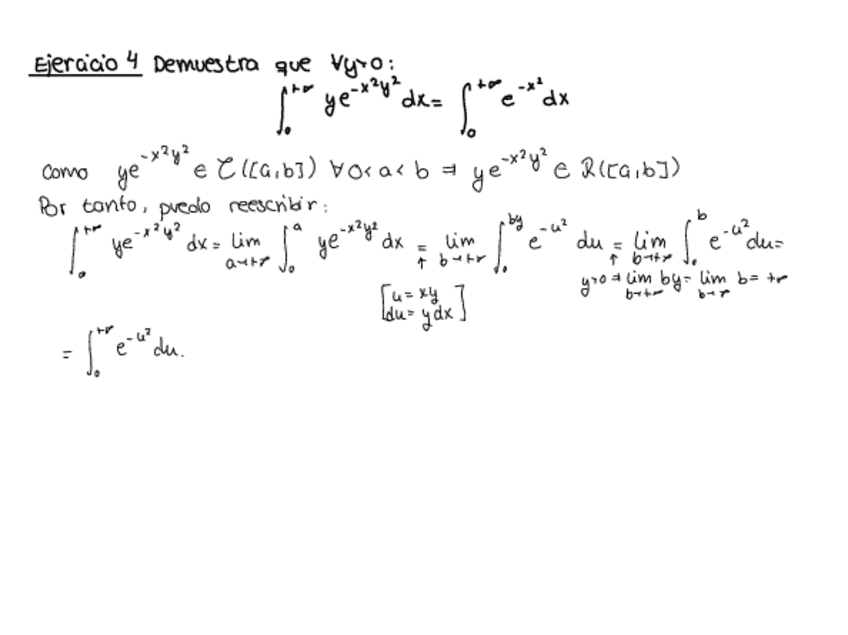 Ejercicio 4 Demuestra que ∀y>0:
∫₀^{+∞} ye^{-x²y²} dx = ∫₀^{+∞} e^{-x²} dx
Como ye^{-x²y²} ∈ C([a,b]) ∀0<a<b ⇒ ye^{-x²y²} ∈ R([a,b])
Por tanto, puedo reescribir:
∫₀^{+∞} ye^{-x²y²} dx = lim_{a→+∞} ∫₀^{a} ye^{-x²y²} dx =↑ lim_{b→+∞} ∫₀^{by} e^{-u²} du =↑ lim_{b→+∞} ∫₀^{b} e^{-u²} du =
y>0 ⇒ lim_{b→+∞} by = lim_{b→∞} b = +∞
[u = xy
du = y dx]
= ∫₀^{+∞} e^{-u²} du.